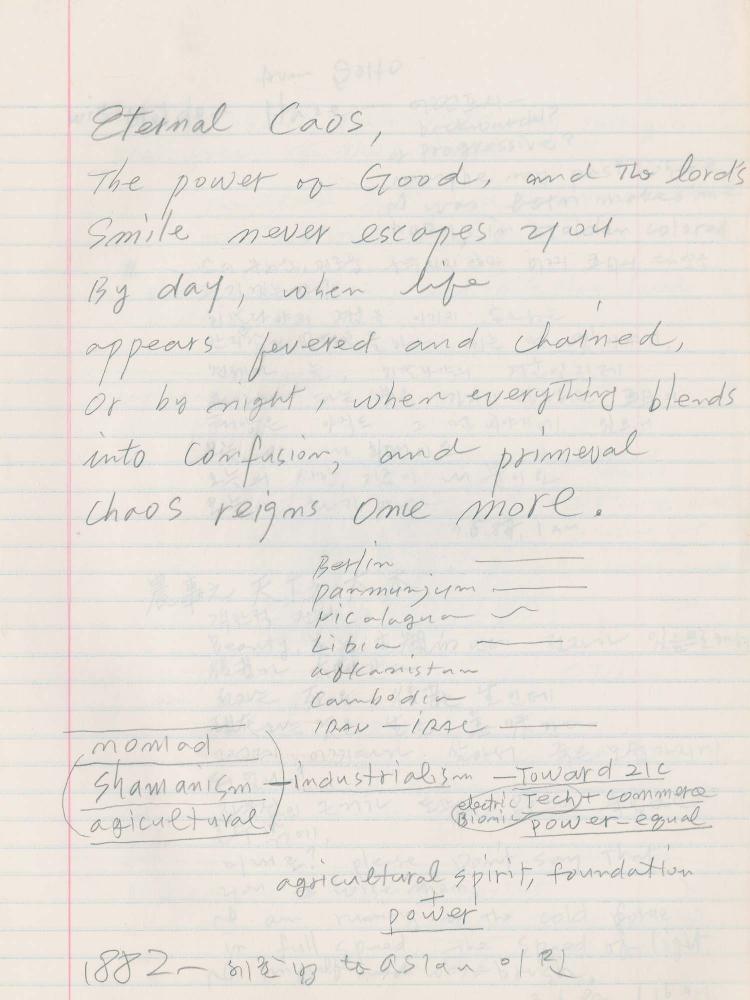 Eternal Caos,
The power of Good, and The lord's
Smile never escapes you
By day, when life
appears fevered and chained,
Or by night, when everything blends
into confusion, and primeval
chaos reigns once more.
Berlin
panmunjum
Nicalagua
Libia
afkanistan
Cambodia
IRAN - IRAC
nomad
Shamanism - industrialism - Toward 21C
electric Tech + commerce
Biomic
agicultural
power-equal
agricultural spirit, foundation
+
power
1882 - to asian